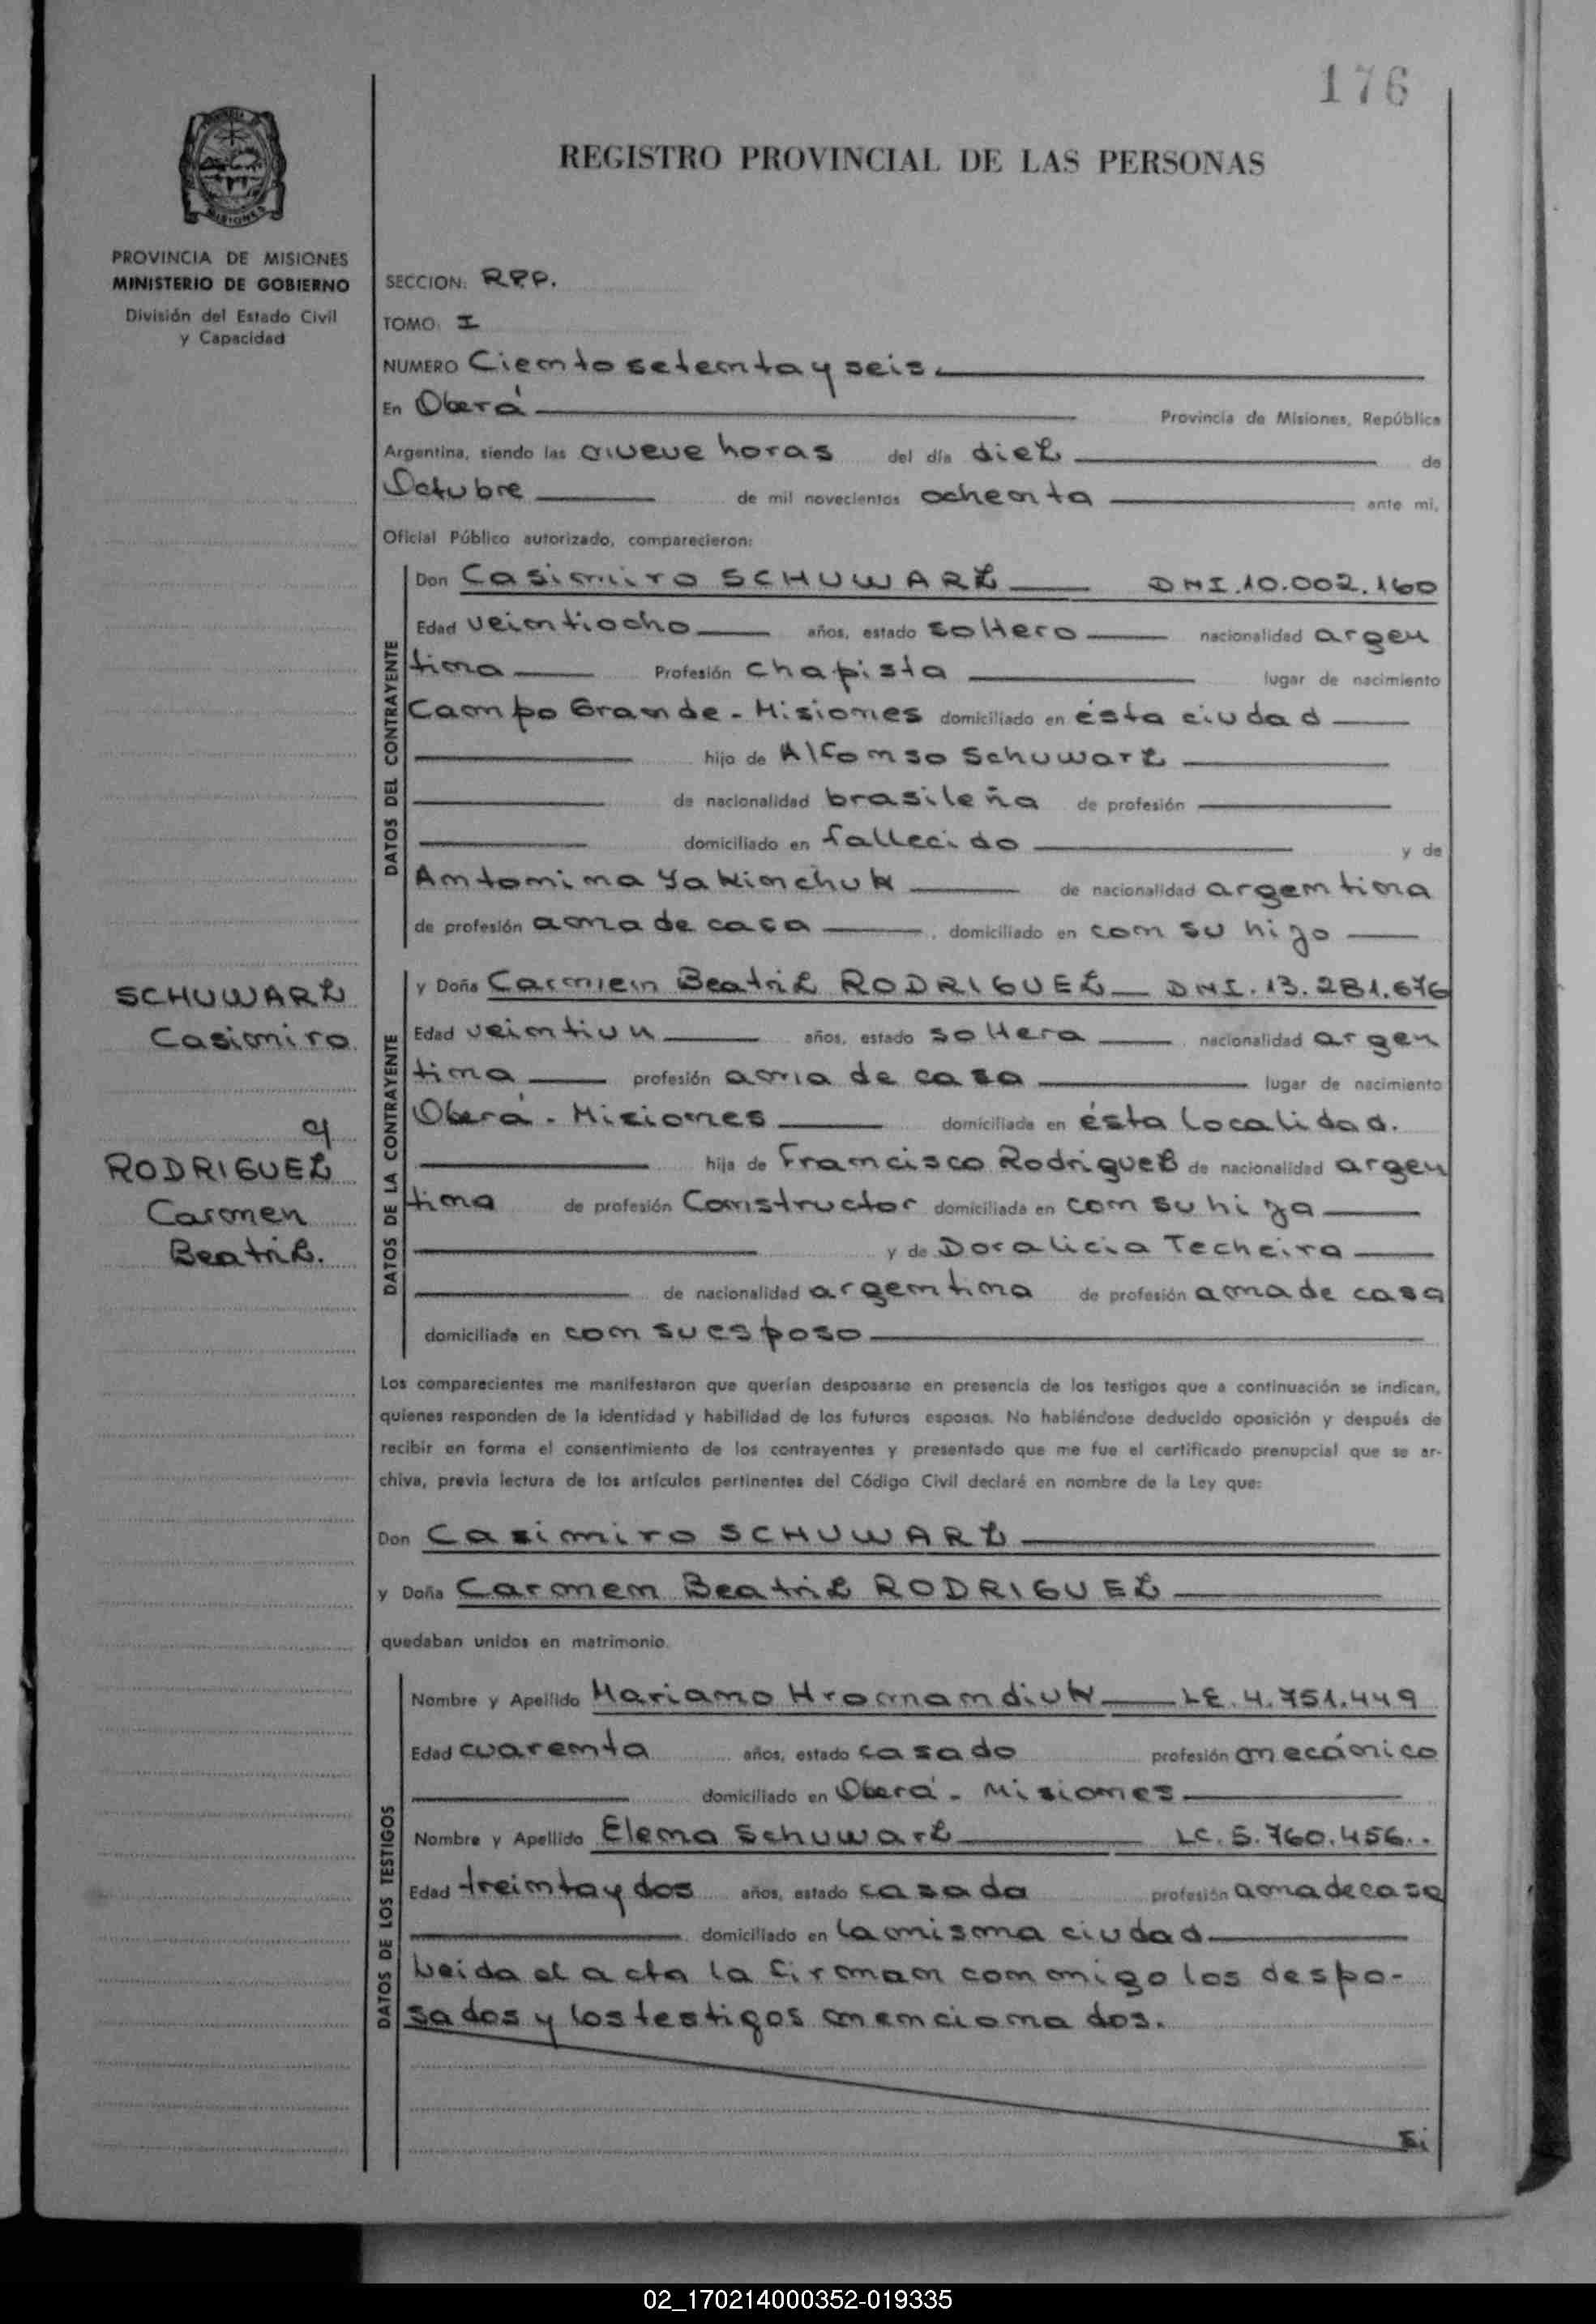 176
REGISTRO PROVINCIAL DE LAS PERSONAS
PROVINCIA DE MISIONES
MINISTERIO DE GOBIERNO
División del Estado Civil
y Capacidad
SECCION: R.P.P.
TOMO: I
NUMERO Ciento setenta y seis
En Oberá Provincia de Misiones, República
Argentina, siendo las nueve horas del día diez de
Octubre de mil novecientos ochenta ante mi,
Oficial Público autorizado, comparecieron:
DATOS DEL CONTRAYENTE
Don Casimiro SCHUWARZ DNI.10.002.160
Edad veintiocho años, estado soltero nacionalidad argen
tina Profesión chapista lugar de nacimiento
Campo Grande - Misiones domiciliado en ésta ciudad
hijo de Alfonso Schuwarz
de nacionalidad brasileña de profesión
domiciliado en fallecido y de
Antonina Yakinchuk de nacionalidad argentina
de profesión ama de casa, domiciliado en con su hijo
SCHUWARZ
Casimiro
y
RODRIGUEZ
Carmen
Beatriz.
DATOS DE LA CONTRAYENTE
y Doña Carmen Beatriz RODRIGUEZ DNI.13.281.676
Edad veintiun años, estado soltera nacionalidad argen
tina profesión ama de casa lugar de nacimiento
Oberá - Misiones domiciliada en ésta localidad.
hija de Francisco Rodriguez de nacionalidad argen
tina de profesión Constructor domiciliada en con su hija
y de Doralicia Techeira
de nacionalidad argentina de profesión ama de casa
domiciliada en con su esposo
Los comparecientes me manifestaron que querían desposarse en presencia de los testigos que a continuación se indican,
quienes responden de la identidad y habilidad de los futuros esposos. No habiéndose deducido oposición y después de
recibir en forma el consentimiento de los contrayentes y presentado que me fue el certificado prenupcial que se ar-
chiva, previa lectura de los artículos pertinentes del Código Civil declaré en nombre de la Ley que:
Don Casimiro SCHUWARZ
y Doña Carmen Beatriz RODRIGUEZ
quedaban unidos en matrimonio.
DATOS DE LOS TESTIGOS
Nombre y Apellido Mariano Hromnandiuk LE.4.751.449
Edad cuarenta años, estado casado profesión mecánico
domiciliado en Oberá - Misiones
Nombre y Apellido Elena Schuwarz LC.5.760.456..
Edad treinta y dos años, estado casada profesión ama de casa
domiciliado en la misma ciudad
Leida el acta la firman conmigo los despo-
sados y los testigos mencionados.
Si
02_170214000352-019335